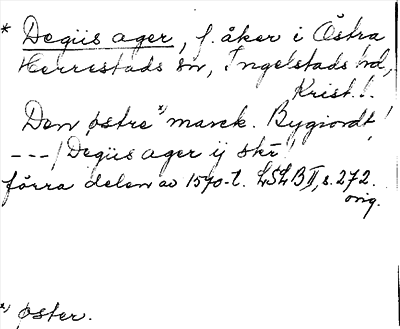 * Degiis ager, f. åker i Östra
Herrestads sn, Ingelstads hd,
Krist. l.
Den østre x) marck. Bygiordt!
---/ Degiis ager ij skr!
förra delen av 1570-t. LSLB II, s. 272.
orig.
x) øster.